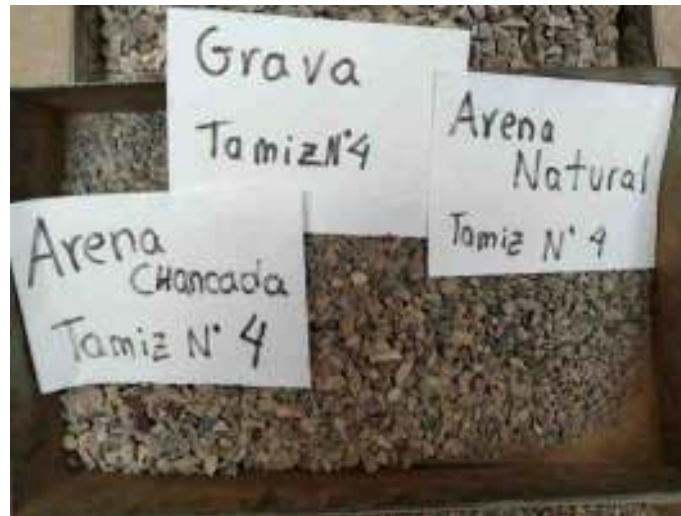 Grava
Tamiz N°4
Arena
Natural
Tamiz N° 4
Arena
CHancada
Tamiz N° 4